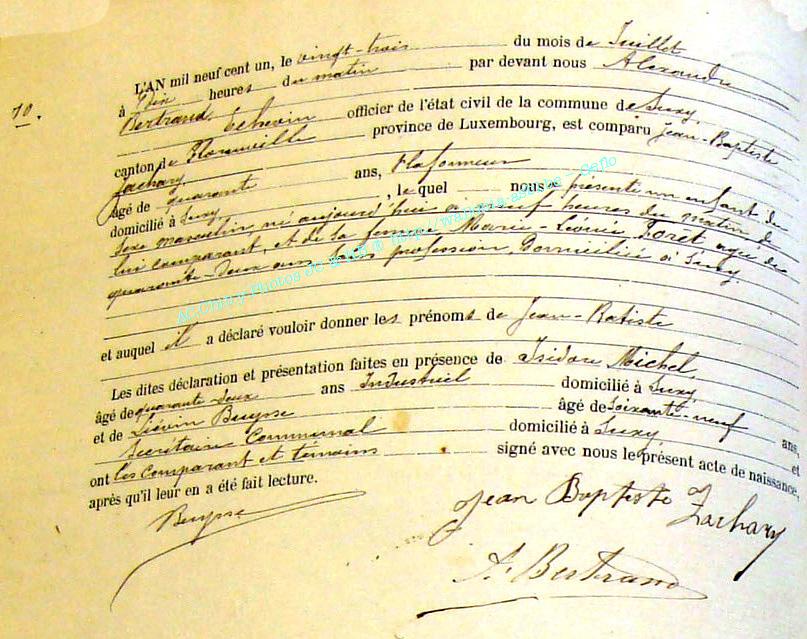 10.
L'AN mil neuf cent un, le vingt-trois du mois de Juillet
à Dix heures du matin par devant nous Alexandre
Bertrand, Echevin officier de l'état civil de la commune de Suxy
canton de Florenville province de Luxembourg, est comparu Jean-Baptiste
Zachary
âgé de quarante ans, Plafonneur
domicilié à Suxy, lequel nous a présenté un enfant de
sexe masculin, né aujourd'hui à neuf heures du matin de
lui comparant, et de sa femme Marie-Léonie Forêt agée de
quarante-deux ans, sans profession, Domiciliée à Suxy
et auquel il a déclaré vouloir donner les prénoms de Jean-Batiste
Les dites déclaration et présentation faites en présence de Isidore Michel
âgé de quarante-deux ans Industriel domicilié à Suxy
et de Liévin Buysse âgé de Soixante-neuf ans,
Secrétaire Communal domicilié à Suxy et
ont les comparant et témoins signé avec nous le présent acte de naissance,
après qu'il leur en a été fait lecture.
Buysse
Jean Baptiste Zachary
A. Bertrand